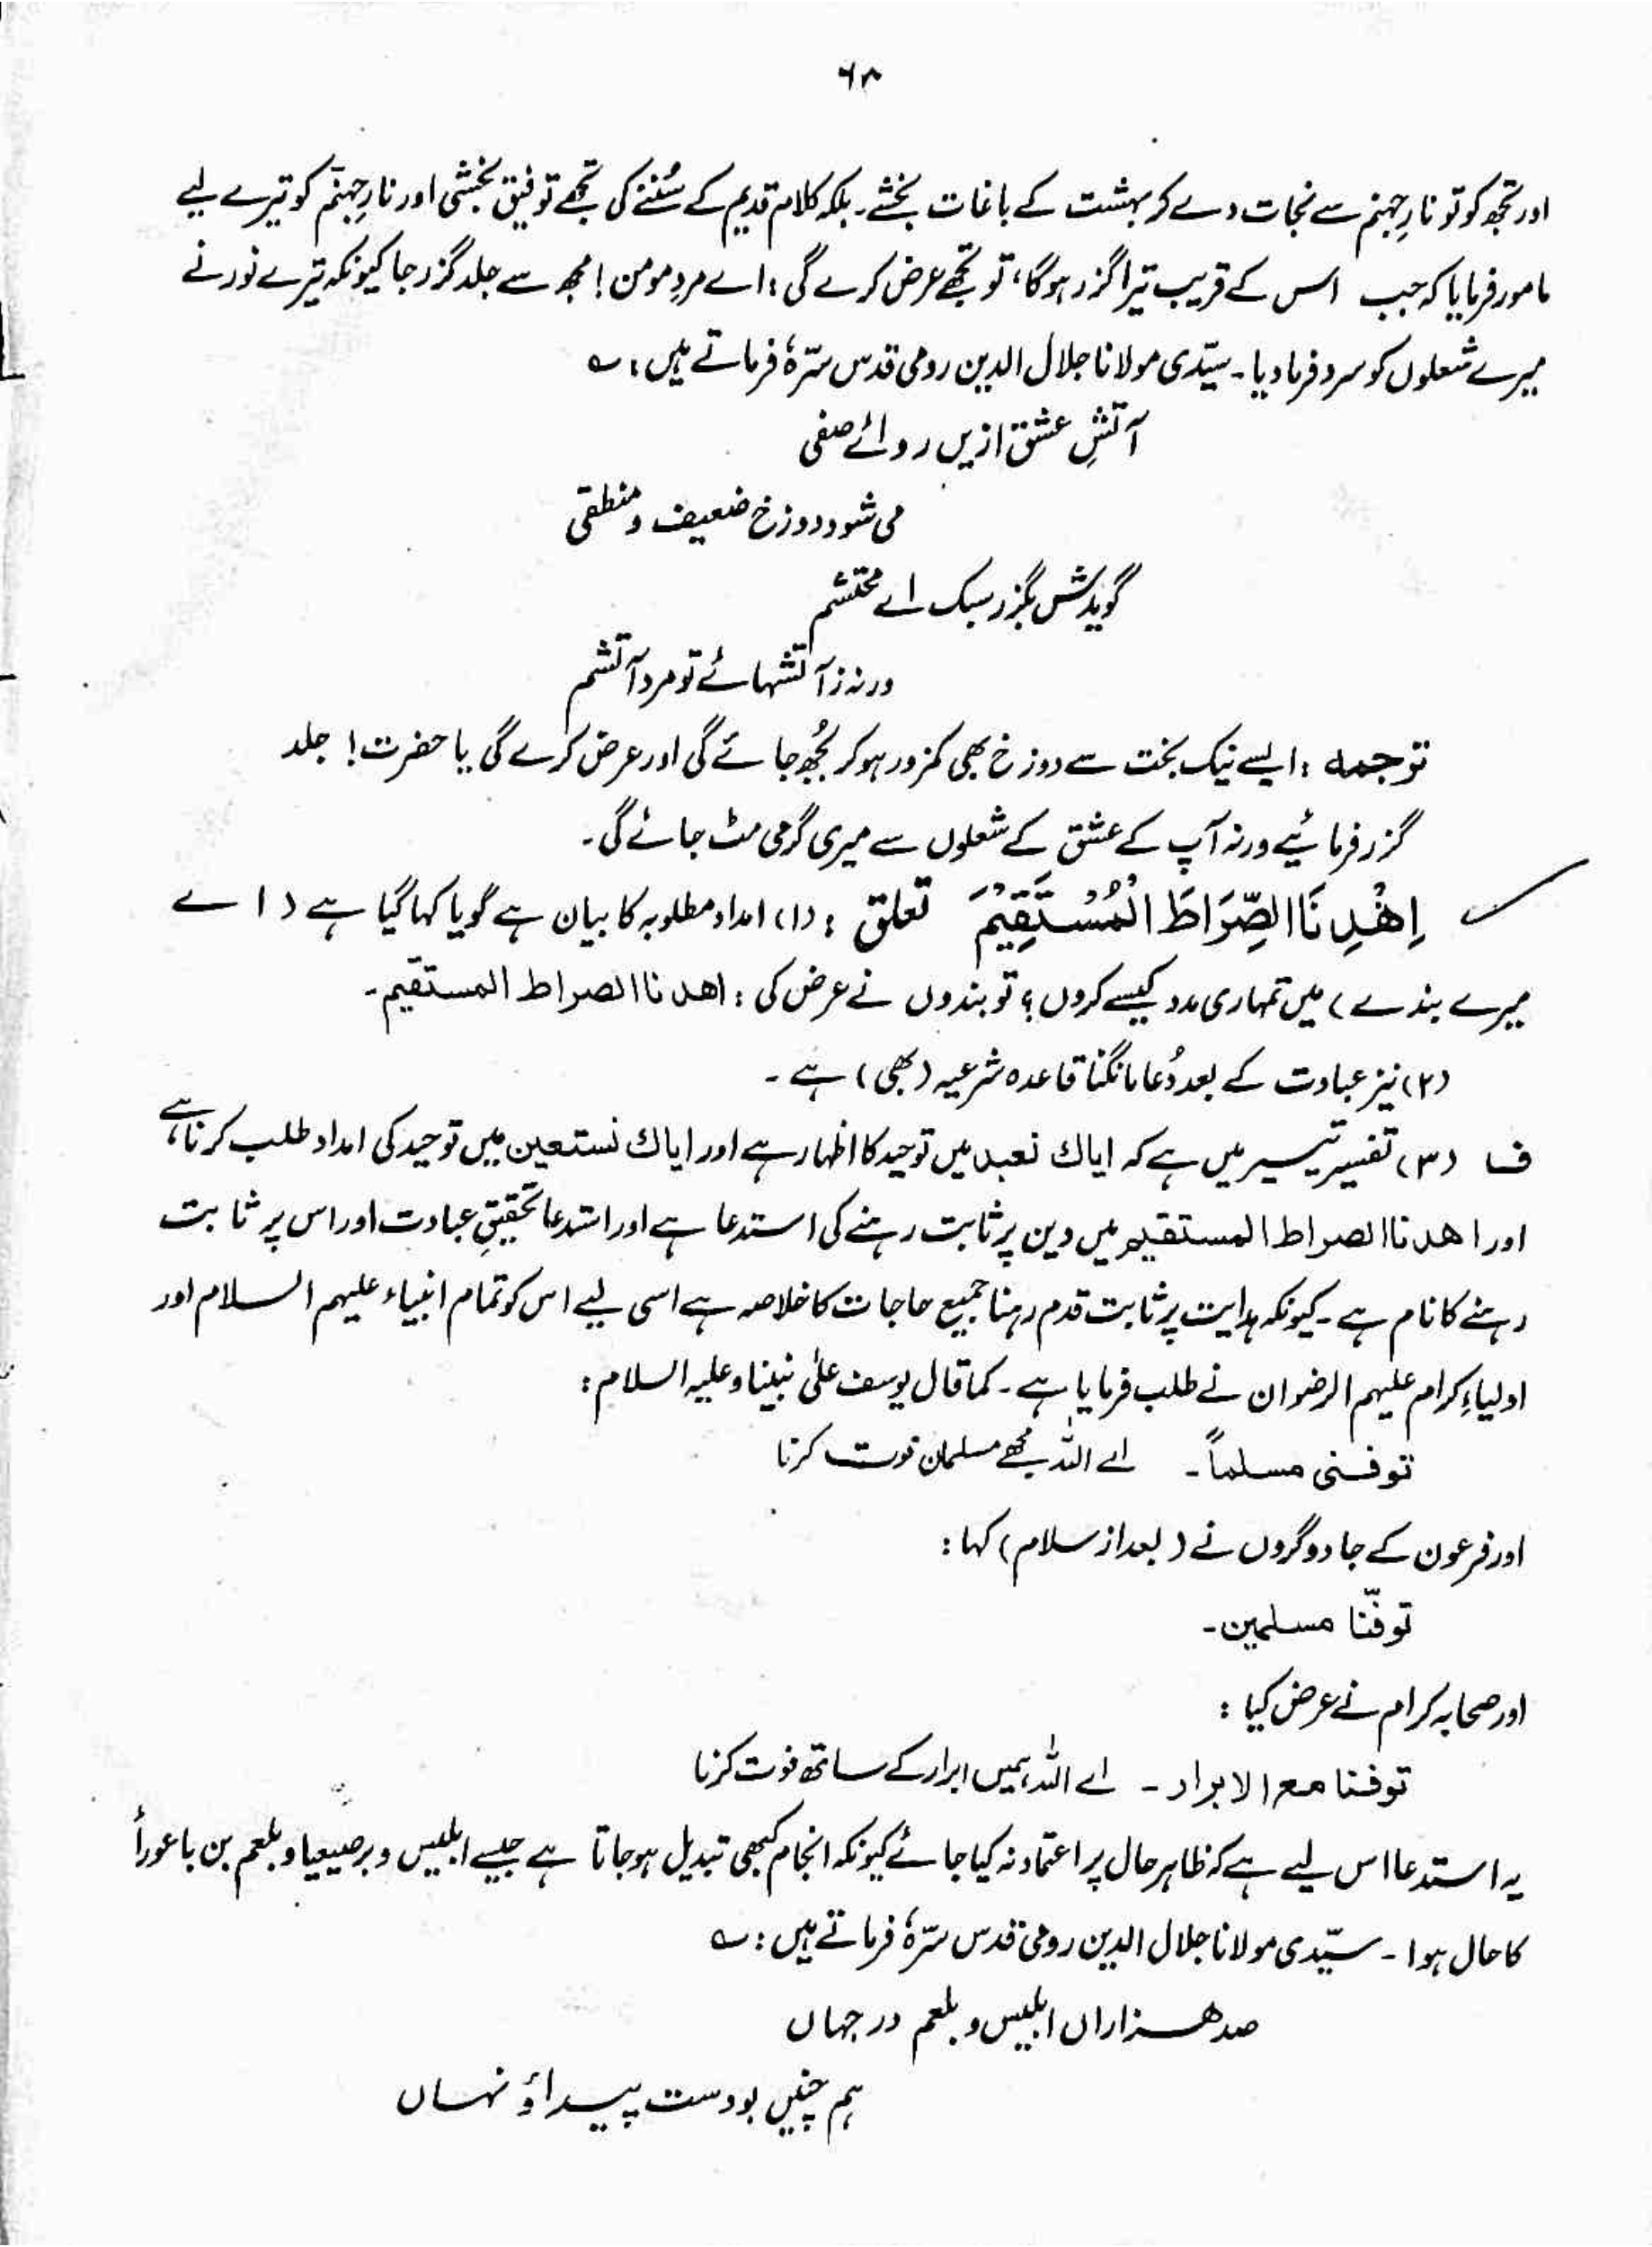 ۶۸
اور تجھ کو تو نارِ جہنم سے نجات دے کر بہشت کے باغات بخشے۔ بلکہ کلام قدیم کے سُننے کی تجھے توفیق بخشی اور نارِ جہنّم کو تیرے لیے
مامور فرمایا کہ جب اس کے قریب تیرا گزر ہوگا، تو تجھے عرض کرے گی: اے مردِ مومن! مجھ سے جلد گزر جا کیونکہ تیرے نور نے
میرے شعلوں کو سرد فرما دیا۔ سیّدی مولانا جلال الدین رومی قدس سرّہٗ فرماتے ہیں: ؎
آتشِ عشق ازیں رو اے صفی
می شود دوزخ ضعیف و منطفی
گویدش بگزر سبک اے محتشم
ورنہ ز آتشہائے تو مرد آتشم
ترجمہ: ایسے نیک بخت سے دوزخ بھی کمزور ہو کر بُجھ جائے گی اور عرض کرے گی یا حضرت! جلد
گزر فرمائیے ورنہ آپ کے عشق کے شعلوں سے میری گرمی مٹ جائے گی۔
اِھْدِنَا الصِّرَاطَ الْمُسْتَقِیْمَ تعلق: (۱) امداد مطلوبہ کا بیان ہے گویا کہا گیا ہے (اے
میرے بندے) میں تمہاری مدد کیسے کروں؟ تو بندوں نے عرض کی: اھدنا الصراط المستقیم۔
(۲) نیز عبادت کے بعد دُعا مانگنا قاعدہ شرعیہ (بھی) ہے۔
ف (۳) تفسیر تیسیر میں ہے کہ ایاك نعبد میں توحید کا اظہار ہے اور ایاك نستعین میں توحید کی امداد طلب کرنا ہے،
اور اھدنا الصراط المستقیم میں دین پر ثابت رہنے کی استدعا ہے اور استدعا تحقیقِ عبادت اور اس پر ثابت
رہنے کا نام ہے۔ کیونکہ ہدایت پر ثابت قدم رہنا جمیع حاجات کا خلاصہ ہے اسی لیے اس کو تمام انبیاء علیہم السلام اور
اولیاءِ کرام علیہم الرضوان نے طلب فرمایا ہے۔ کما قال یوسف علیٰ نبینا وعلیہ السلام:
توفنی مسلماً۔ اے اللہ مجھے مسلمان فوت کرنا
اور فرعون کے جادوگروں نے (بعد از سلام) کہا:
توفّنا مسلمین۔
اور صحابہ کرام نے عرض کیا:
توفنا مع الابرار۔ اے اللہ ہمیں ابرار کے ساتھ فوت کرنا
یہ استدعا اس لیے ہے کہ ظاہر حال پر اعتماد نہ کیا جائے کیونکہ انجام کبھی تبدیل ہو جاتا ہے جیسے ابلیس و برصیعیا و بلعم بن باعوراً
کا حال ہوا۔ سیّدی مولانا جلال الدین رومی قدس سرّہٗ فرماتے ہیں: ؎
صد ھزاراں ابلیس و بلعم در جہاں
ہم چنیں بودست پیدا ؤ نہاں